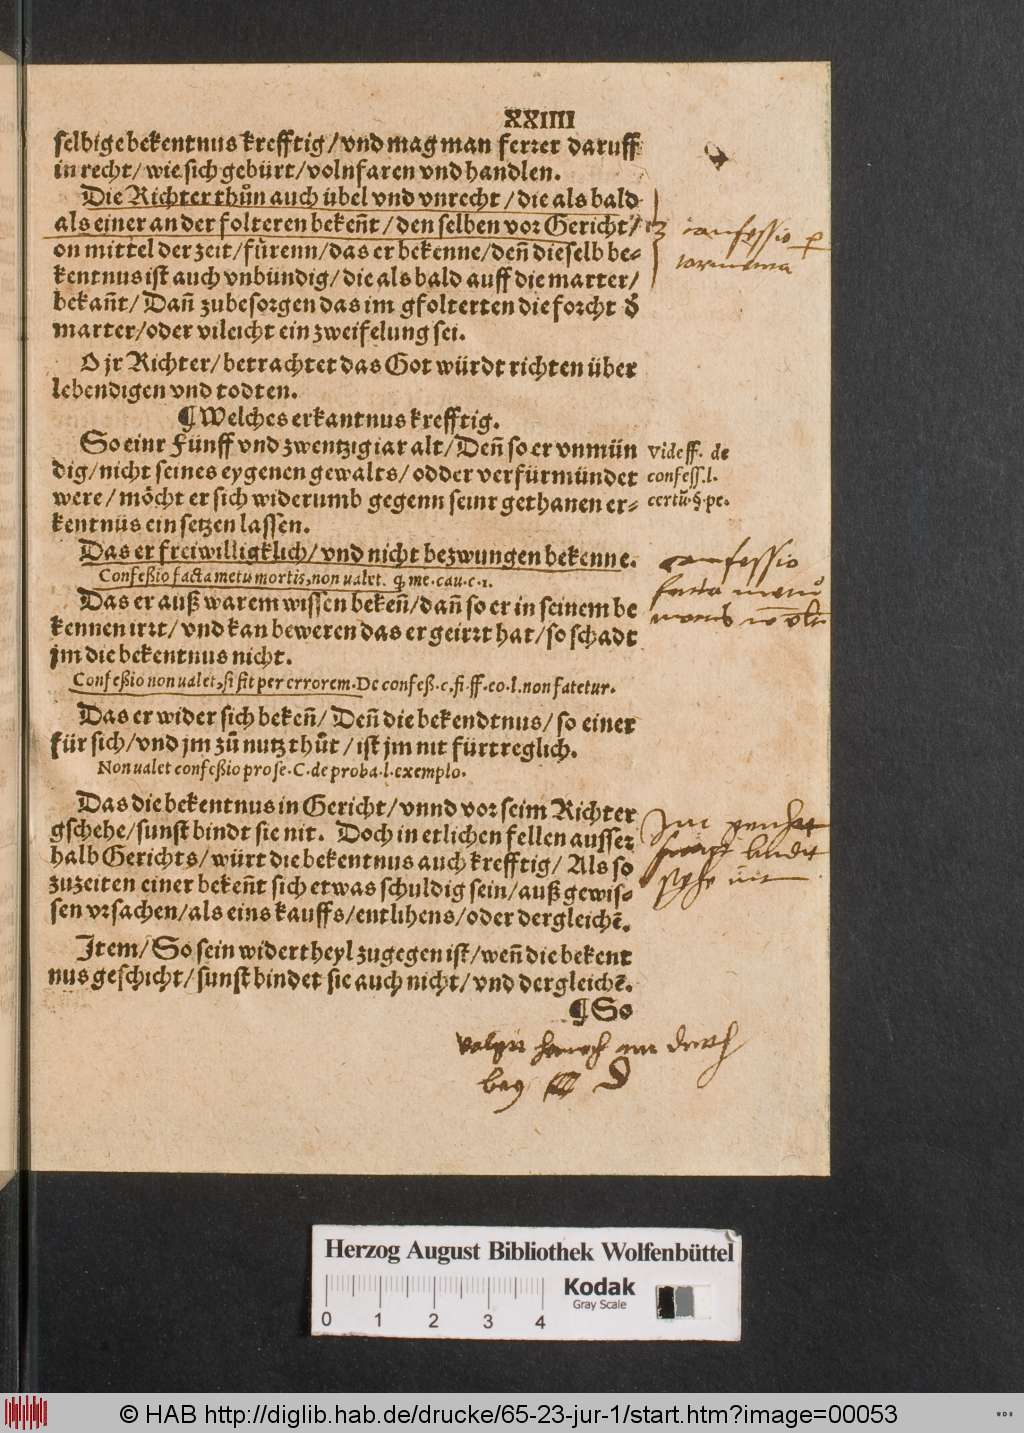 XXIIII
selbige bekentnus krefftig/ vnd mag man ferrer daruff
in recht/ wie sich gebürt/ volnfaren vnd handlen.
Die Richter thůn auch übel vnd vnrecht/ die als bald
als einer an der folteren bekeñt/ den selben vor Gericht/
on mittel der zeit/ fürenn/ das er bekenne/ deñ dieselb be-
kentnus ist auch vnbündig/ die als bald auff die marter/
bekañt/ Dañ zubesorgen das im gfolterten die forcht d'
marter/ oder vileicht ein zweifelung sei.
confessio p
tormenta
O jr Richter/ betrachtet das Got würdt richten über
lebendigen vnd todten.
¶ Welches erkantnus krefftig.
So einr Fünff vnd zwentzig iar alt/ Deñ so er vnmün
dig/ nicht seines eygenen gewalts/ odder verfürmündet
were/ möcht er sich widerumb gegenn seinr gethanen er-
kentnüs ein setzen lassen.
vide ff. de
confess. l.
certū. §. pe.
Das er freiwilligklich/ vnd nicht bezwungen bekenne.
Confeßio facta metu mortis, non ualet. q̄ me. cau. c. 1.
Das er auß warem wissen bekeñ/ dañ so er in seinem be
kennen irrt/ vnd kan beweren das er geirrt hat/ so schadt
jm die bekentnus nicht.
confessio
facta metu
mortis nō
Confeßio non ualet, si fit per errorem. De confeß. c. fi. ff. eo. l. non fatetur.
Das er wider sich bekeñ/ Deñ die bekendtnus/ so einer
für sich/ vnd jm zů nutz thůt/ ist jm nit fürtreglich.
Non ualet confeßio pro se. C. de proba. l. exemplo.
Das die bekentnus in Gericht/ vnnd vor seim Richter
gschehe/ sunst bindt sie nit. Doch in etlichen fellen ausser
halb Gerichts/ würt die bekentnus auch krefftig/ Als so
zuzeiten einer bekeñt sich etwas schuldig sein/ auß gewis-
sen vrsachen/ als eins kauffs/ entlihens/ oder dergleichē.
Item/ So sein widertheyl zugegen ist/ weñ die bekent
nus geschicht/ sunst bindet sie auch nicht/ vnd dergleichē.
¶ So
Herzog August Bibliothek Wolfenbüttel
Kodak
Gray Scale
0 1 2 3 4
© HAB http://diglib.hab.de/drucke/65-23-jur-1/start.htm?image=00053